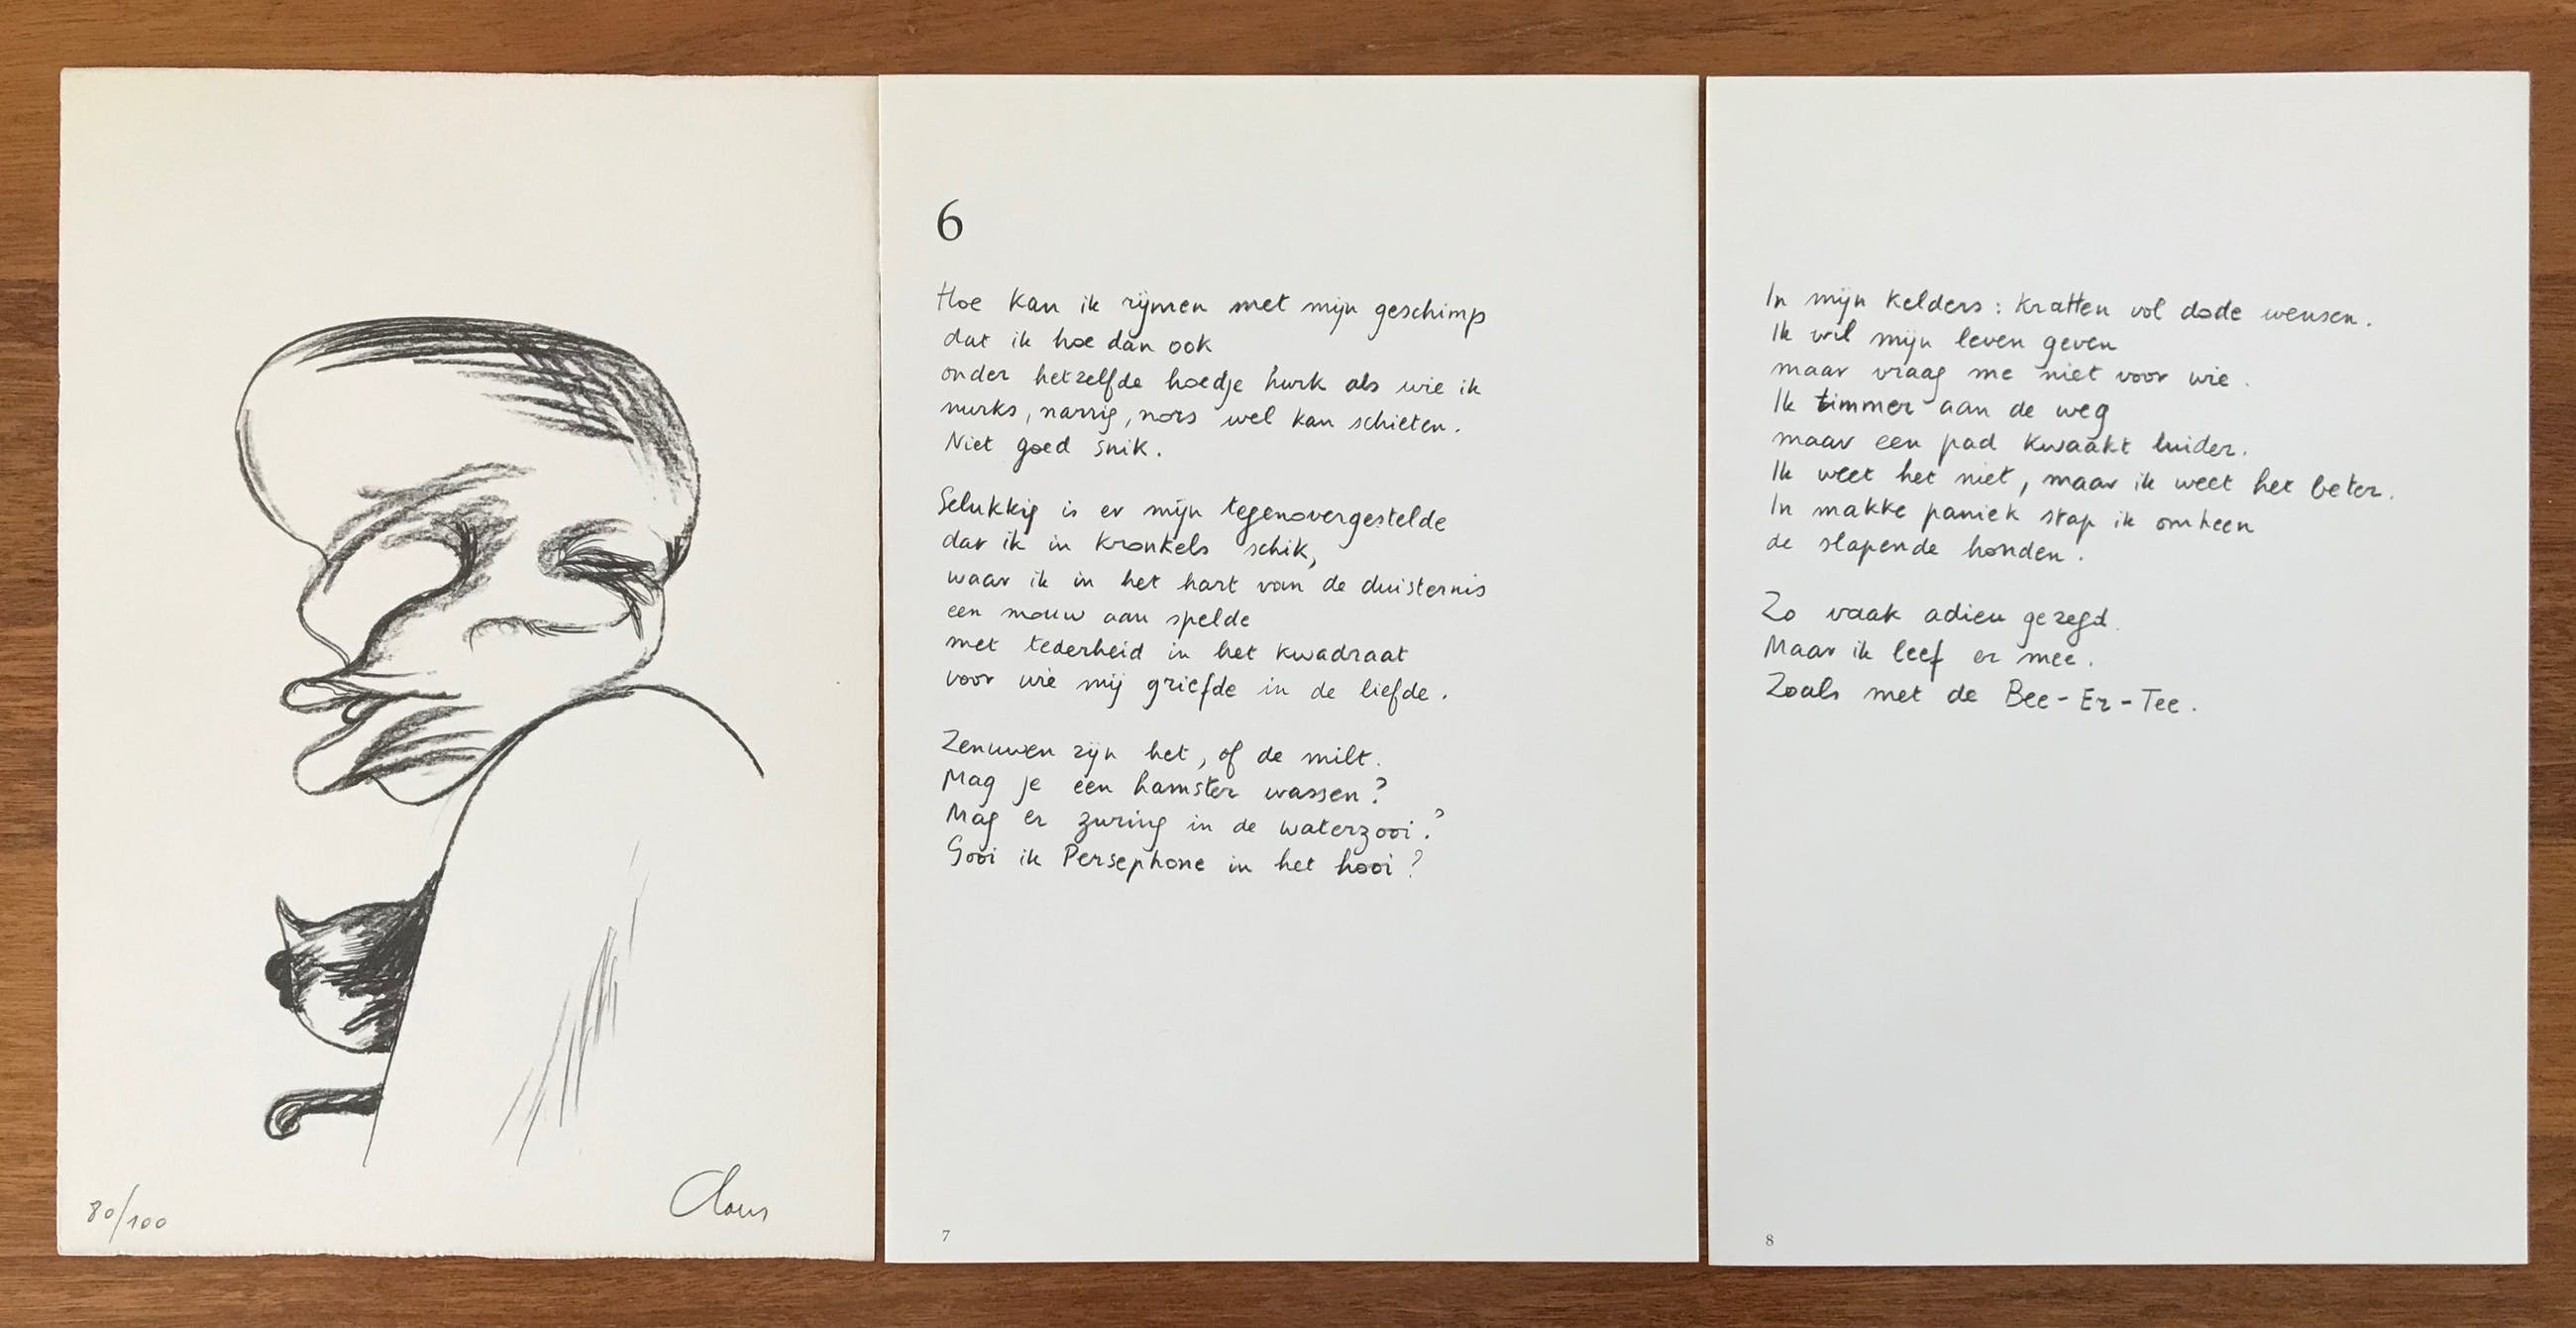 80/100
Claus
6
Hoe kan ik rijmen met mijn geschimp
dat ik hoe dan ook
onder hetzelfde hoedje hurk als wie ik
nurks, narrig, nors wel kan schieten.
Niet goed snik.
Gelukkig is er mijn tegenovergestelde
dat ik in kronkels schik,
waar ik in het hart van de duisternis
een mouw aan spelde
met tederheid in het kwadraat
voor wie mij griefde in de liefde.
Zenuwen zijn het, of de milt.
Mag je een hamster wassen?
Mag er zuring in de waterzooi?
Gooi ik Persephone in het hooi?
7
In mijn kelders: kratten vol dode wensen.
Ik wil mijn leven geven
maar vraag me niet voor wie.
Ik timmer aan de weg
maar een pad kwaakt luider.
Ik weet het niet, maar ik weet het beter.
In makke paniek stap ik omheen
de slapende honden.
Zo vaak adieu gezegd.
Maar ik leef er mee.
Zoals met de Bee-Er-Tee.
8